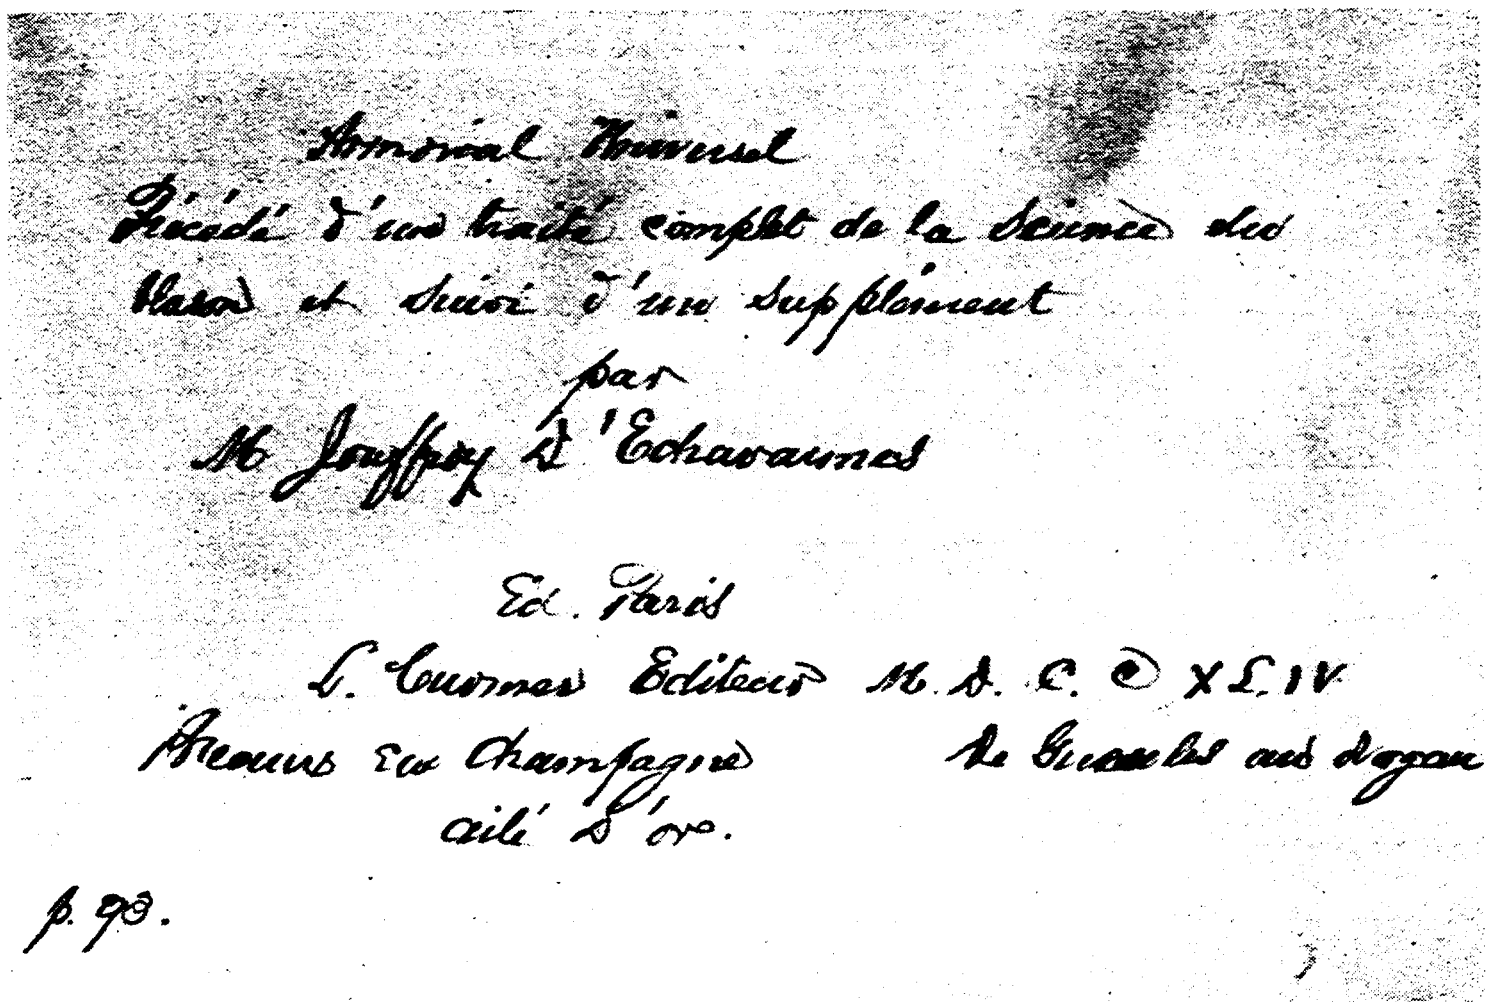 Armorial Universel
Précédé d'un traité complet de la science du
blason et suivi d'un supplément
par
M Jouffroy D'Echavaunes
Ed. Paris
L. Curmer Editeur M. D. C. C XL.IV
en Champagne De Gueules au dragon
ailé D'or.
p. 93.